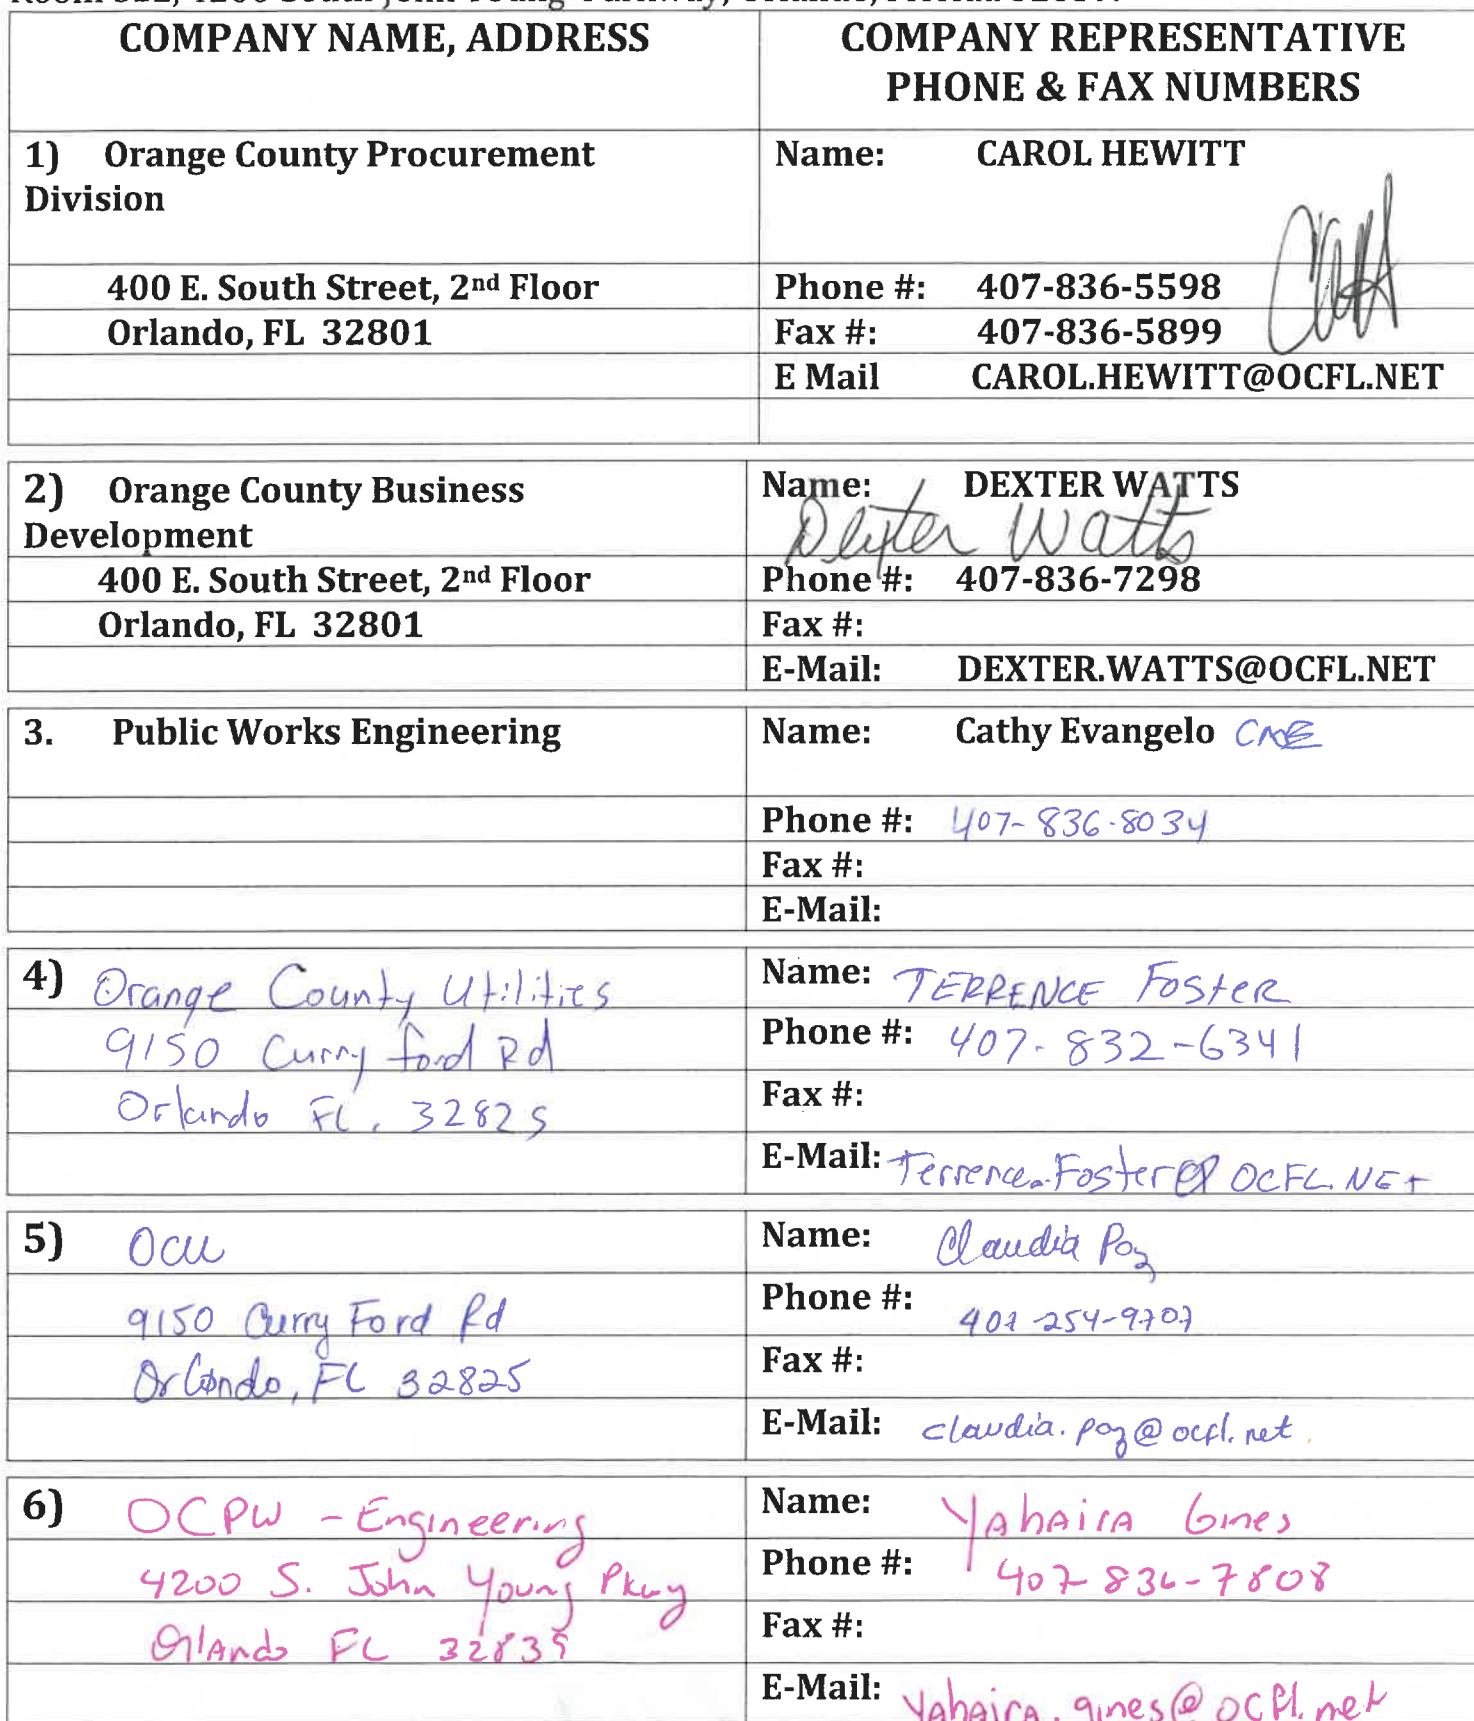 COMPANY NAME, ADDRESS
COMPANY REPRESENTATIVE
PHONE & FAX NUMBERS
1) Orange County Procurement
Division
Name: CAROL HEWITT
400 E. South Street, 2nd Floor
Phone #: 407-836-5598
Orlando, FL 32801
Fax #: 407-836-5899
E Mail CAROL.HEWITT@OCFL.NET
2) Orange County Business
Development
Name: DEXTER WATTS
Dexter Watts
400 E. South Street, 2nd Floor
Phone #: 407-836-7298
Orlando, FL 32801
Fax #:
E-Mail: DEXTER.WATTS@OCFL.NET
3. Public Works Engineering
Name: Cathy Evangelo CAE
Phone #: 407-836-8034
Fax #:
E-Mail:
4) Orange County Utilities
Name: TERRENCE FOSTER
9150 Curry ford Rd
Phone #: 407-832-6341
Orlando FL. 32825
Fax #:
E-Mail: Terrence.Foster@OCFL.NET
5) OCU
Name: Claudia Paz
9150 Curry Ford Rd
Phone #: 407-254-9707
Orlando, FL 32825
Fax #:
E-Mail: claudia.paz@ocfl.net.
6) OCPW - Engineering
Name: Yahaira Gines
4200 S. John Young Pkwy
Phone #: 407-836-7808
Orlando FL 32839
Fax #:
E-Mail: Yahaira.gines@ocfl.net